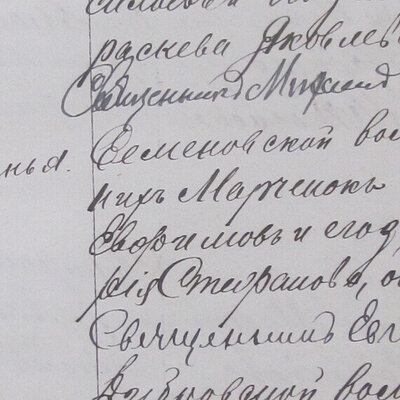 раскева Яковлев
Священникъ Михаил
нья.
Семеновской вол
нихъ Марченокъ
Евфимовъ и его
рія Стефанова,
Священникъ Евг
вол